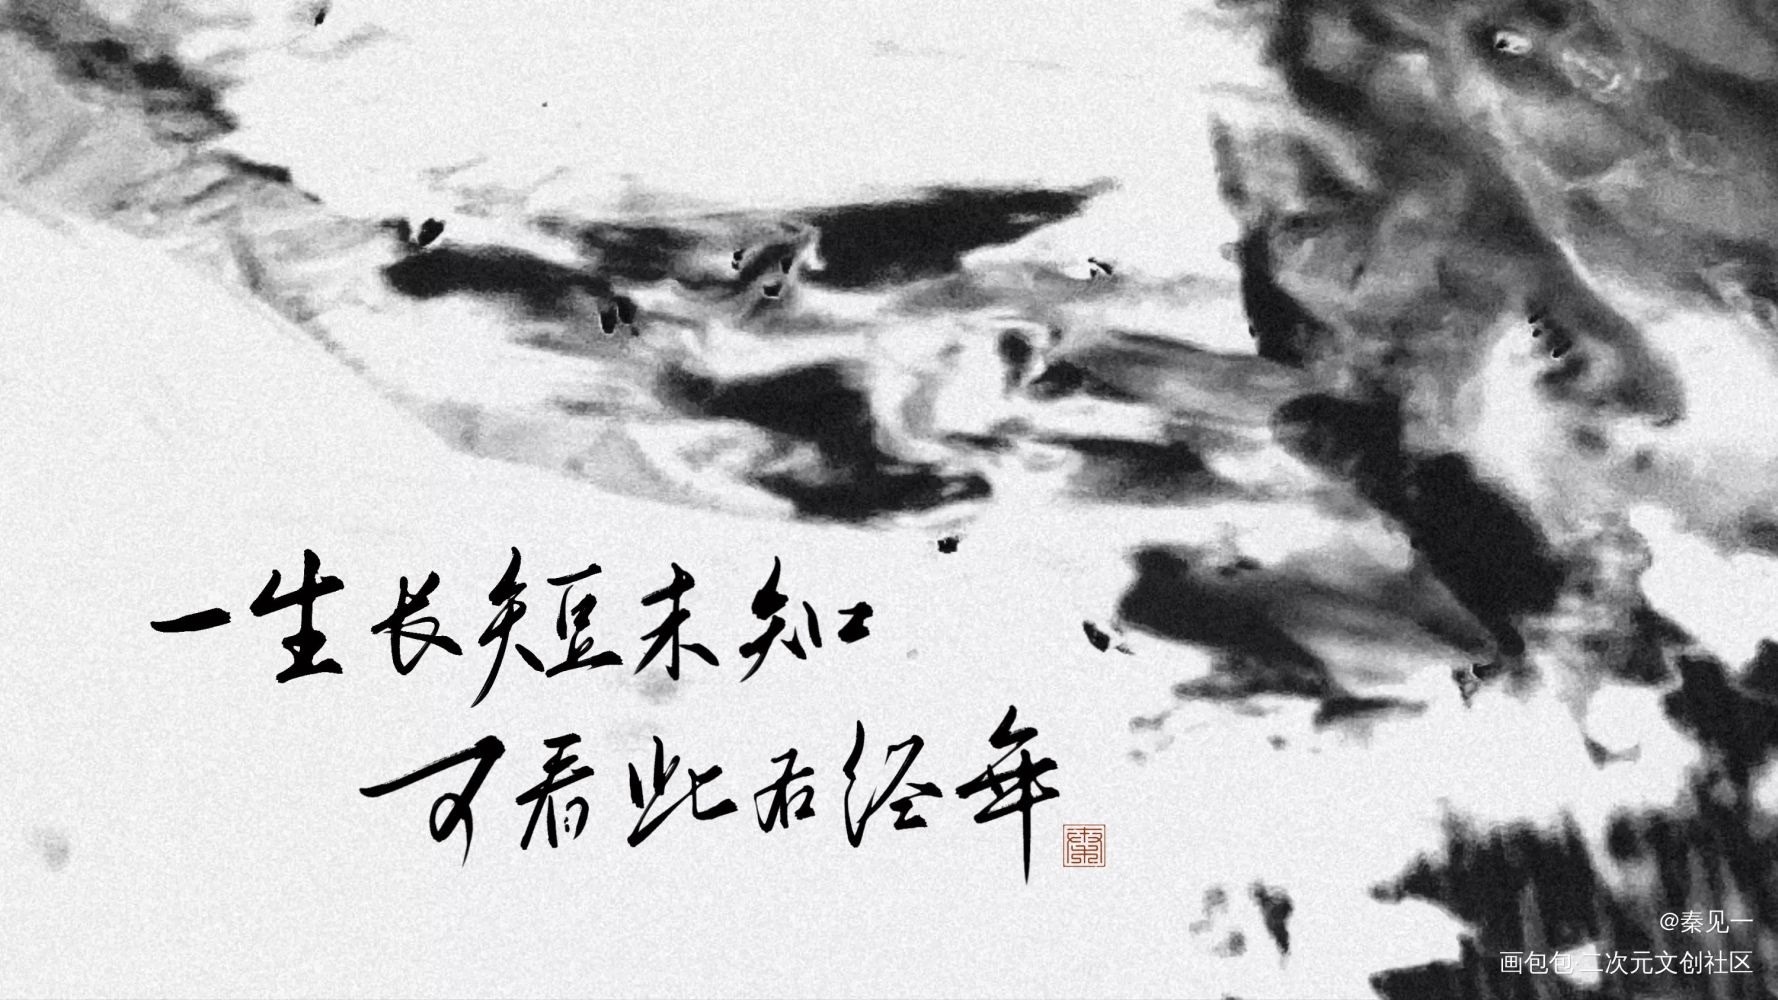 一生长短未知
可看此右经年
@秦见一
画包包·二次元文创社区